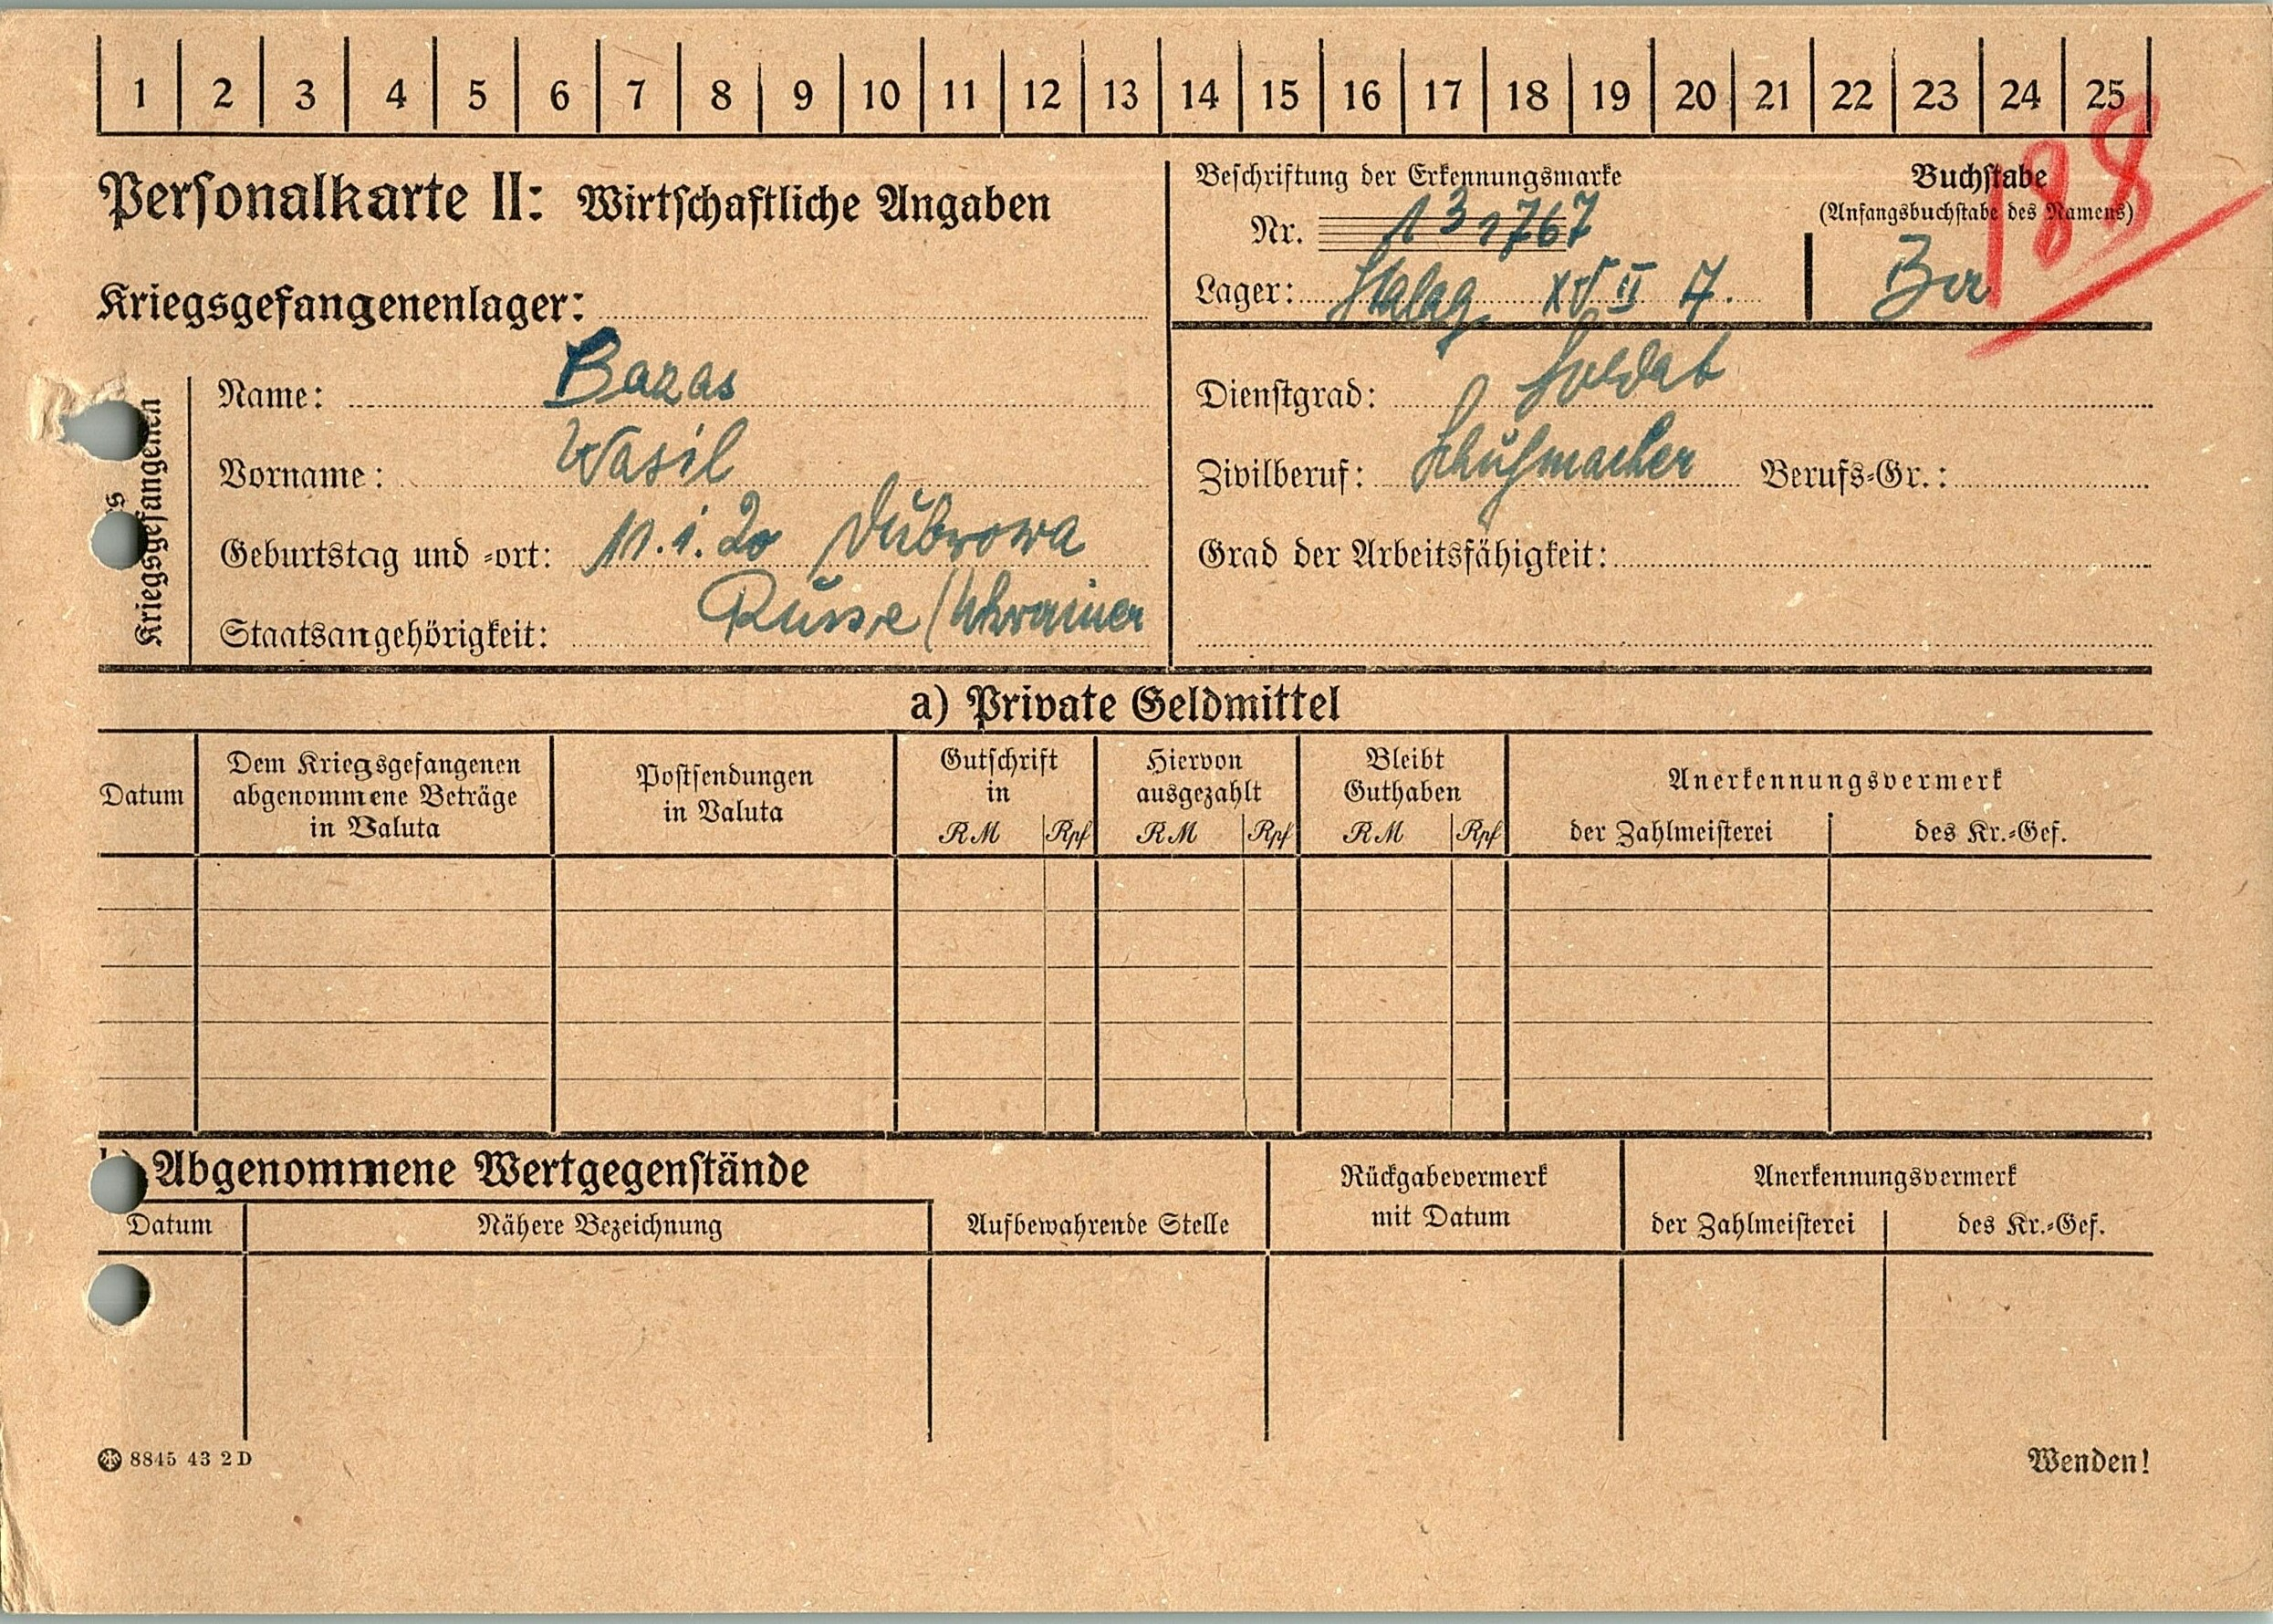 1 2 3 4 5 6 7 8 9 10 11 12 13 14 15 16 17 18 19 20 21 22 23 24 25
188
Personalkarte II: Wirtschaftliche Angaben
Kriegsgefangenenlager:
Beschriftung der Erkennungsmarke
Nr. 131767
Lager: Stalag XVII A.
Buchstabe
(Anfangsbuchstabe des Namens)
Kriegsgefangenen
Name: Bazas
Vorname: Wasil
Geburtstag und -ort: 11.1.20 Dubrowa
Staatsangehörigkeit: Russe / Ukrainer
Dienstgrad: Soldat
Zivilberuf: Schuhmacher Berufs-Gr.:
Grad der Arbeitsfähigkeit:
a) Private Geldmittel
Datum
Dem Kriegsgefangenen
abgenommene Beträge
in Valuta
Postsendungen
in Valuta
Gutschrift
in
RM Rpf
Hiervon
ausgezahlt
RM Rpf
Bleibt
Guthaben
RM Rpf
Anerkennungsvermerk
der Zahlmeisterei des Kr.-Gef.
Abgenommene Wertgegenstände
Datum
Nähere Bezeichnung
Aufbewahrende Stelle
Rückgabevermerk
mit Datum
Anerkennungsvermerk
der Zahlmeisterei des Kr.-Gef.
8845 43 2 D
Wenden!